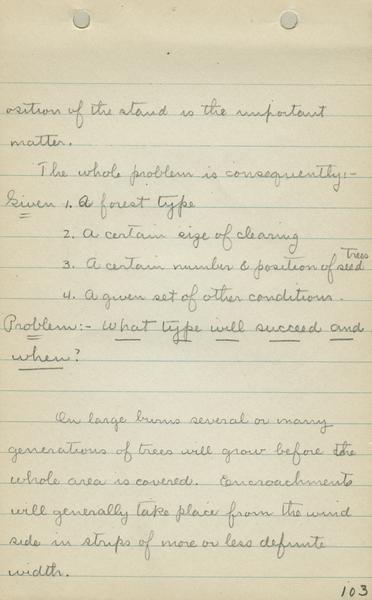 osition of the stand is the important
matter.
The whole problem is consequently:-
Given 1. A forest type
2. A certain size of clearing
3. A certain number & position of seed trees
4. A given set of other conditions.
Problem:- What type will succeed and
when?
On large burns several or many
generations of trees will grow before the
whole area is covered. Encroachments
will generally take place from the wind
side in strips of more or less definite
width.
103